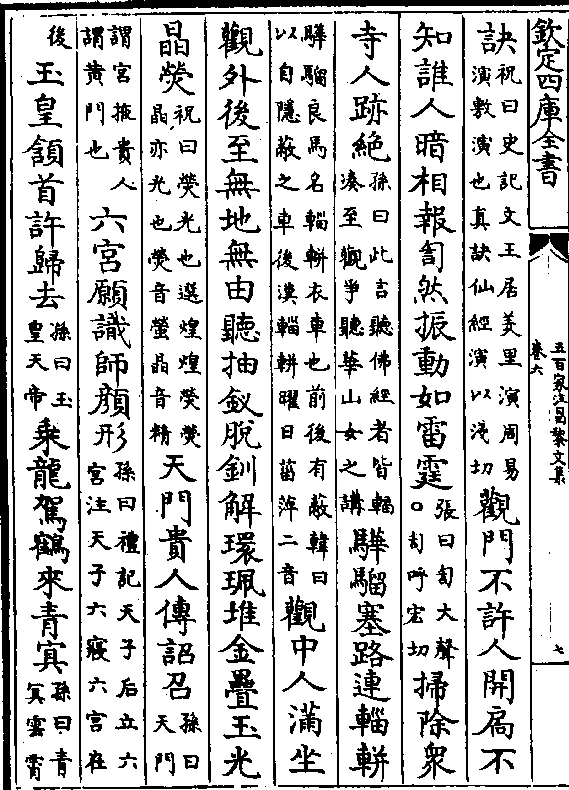 欽定四庫全書
卷六
五百家注昌黎文集
七
訣祝曰史記文王居羑里演周易演敷演也真訣仙經演以淺切觀門不許人開扃不
知誰人暗相報訇然振動如雷霆張曰訇大聲○訇呼宏切掃除衆
寺人跡絶孫曰此言聽佛經者皆輻湊至觀爭聽華山女之講驊騮塞路連輜軿
驊騮良馬名輜軿衣車也前後有蔽韓曰以自隱蔽之車後漢輜軿曜日菑蓱二音觀中人滿坐
觀外後至無地無由聽抽釵脫釧解環珮堆金疊玉光
晶熒祝曰熒光也選煌煌熒熒晶亦光也熒音螢晶音精天門貴人傳詔召孫曰天門
謂宮掖貴人謂黄門也六宮願識師顔形孫曰禮記天子后立六宮注天子六寢六宮在
後玉皇頷首許歸去孫曰玉皇天帝乘龍駕鶴來青冥孫曰青冥雲霄